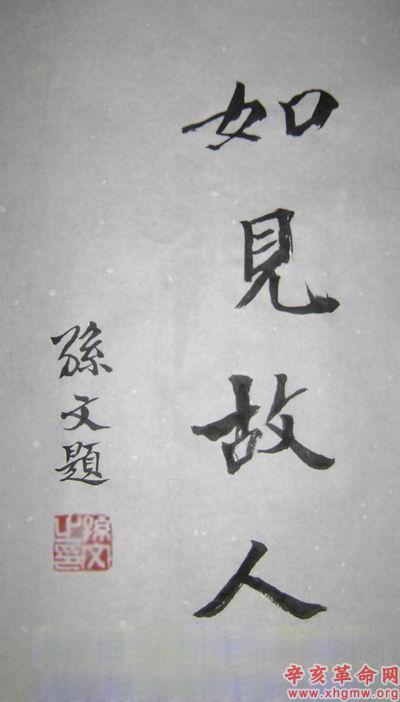 如見故人
孫文題
孫文之印
辛亥革命网
www.xhgmw.org